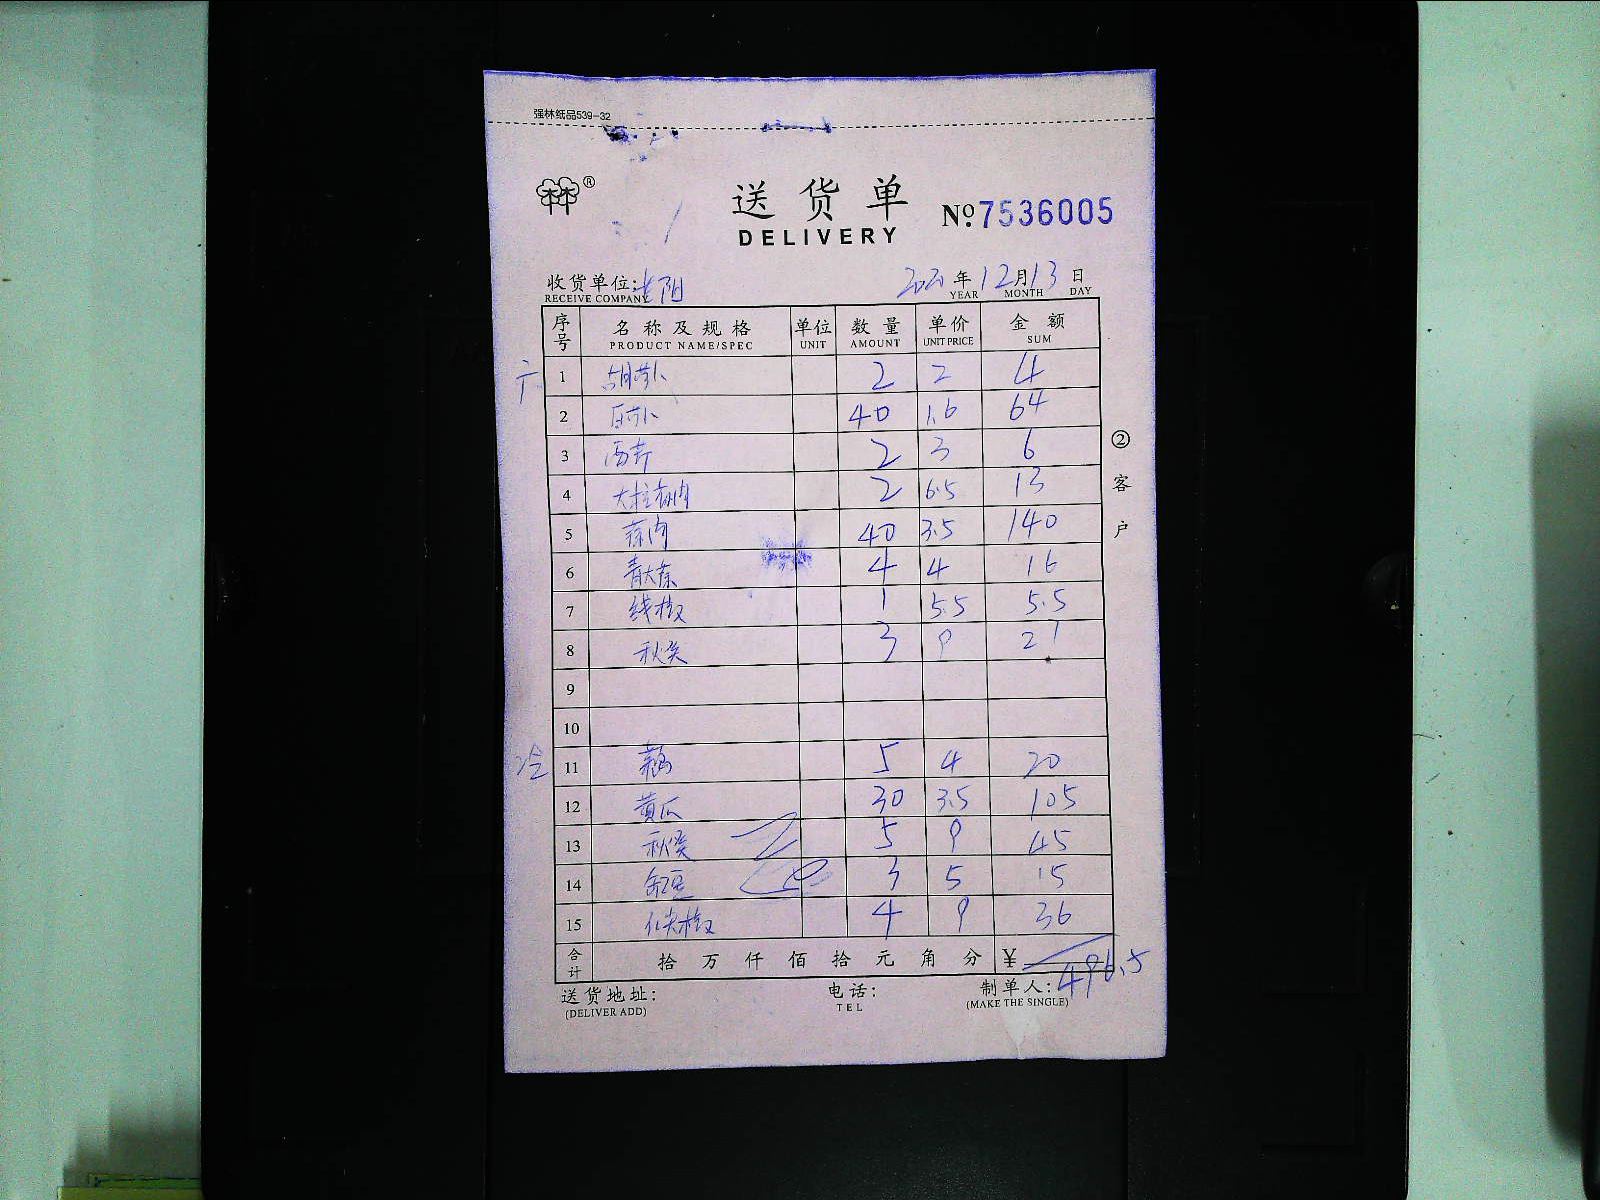 强林纸品539-32
®
送货单
DELIVERY
№.7536005
收货单位:
RECEIVE COMPANY
2020年12月13日
YEAR MONTH DAY
序号 名称及规格 单位 数量 单价 金额
PRODUCT NAME/SPEC UNIT AMOUNT UNIT PRICE SUM
1 胡萝卜 2 2 4
2 白萝卜 40 1.6 64
3 西芹 2 3 6
4 2 6.5 13
5 蒜肉 40 3.5 140
6 青大蒜 4 4 16
7 线椒 1 5.5 5.5
8 秋葵 3 9 27
9
10
冷 11 5 4 20
12 黄瓜 30 3.5 105
13 秋葵 5 9 45
14 3 5 15
15 4 9 36
合计 拾万仟佰拾元角分 ¥ 496.5
送货地址: 电话: 制单人:
(DELIVER ADD) TEL (MAKE THE SINGLE)
② 客户